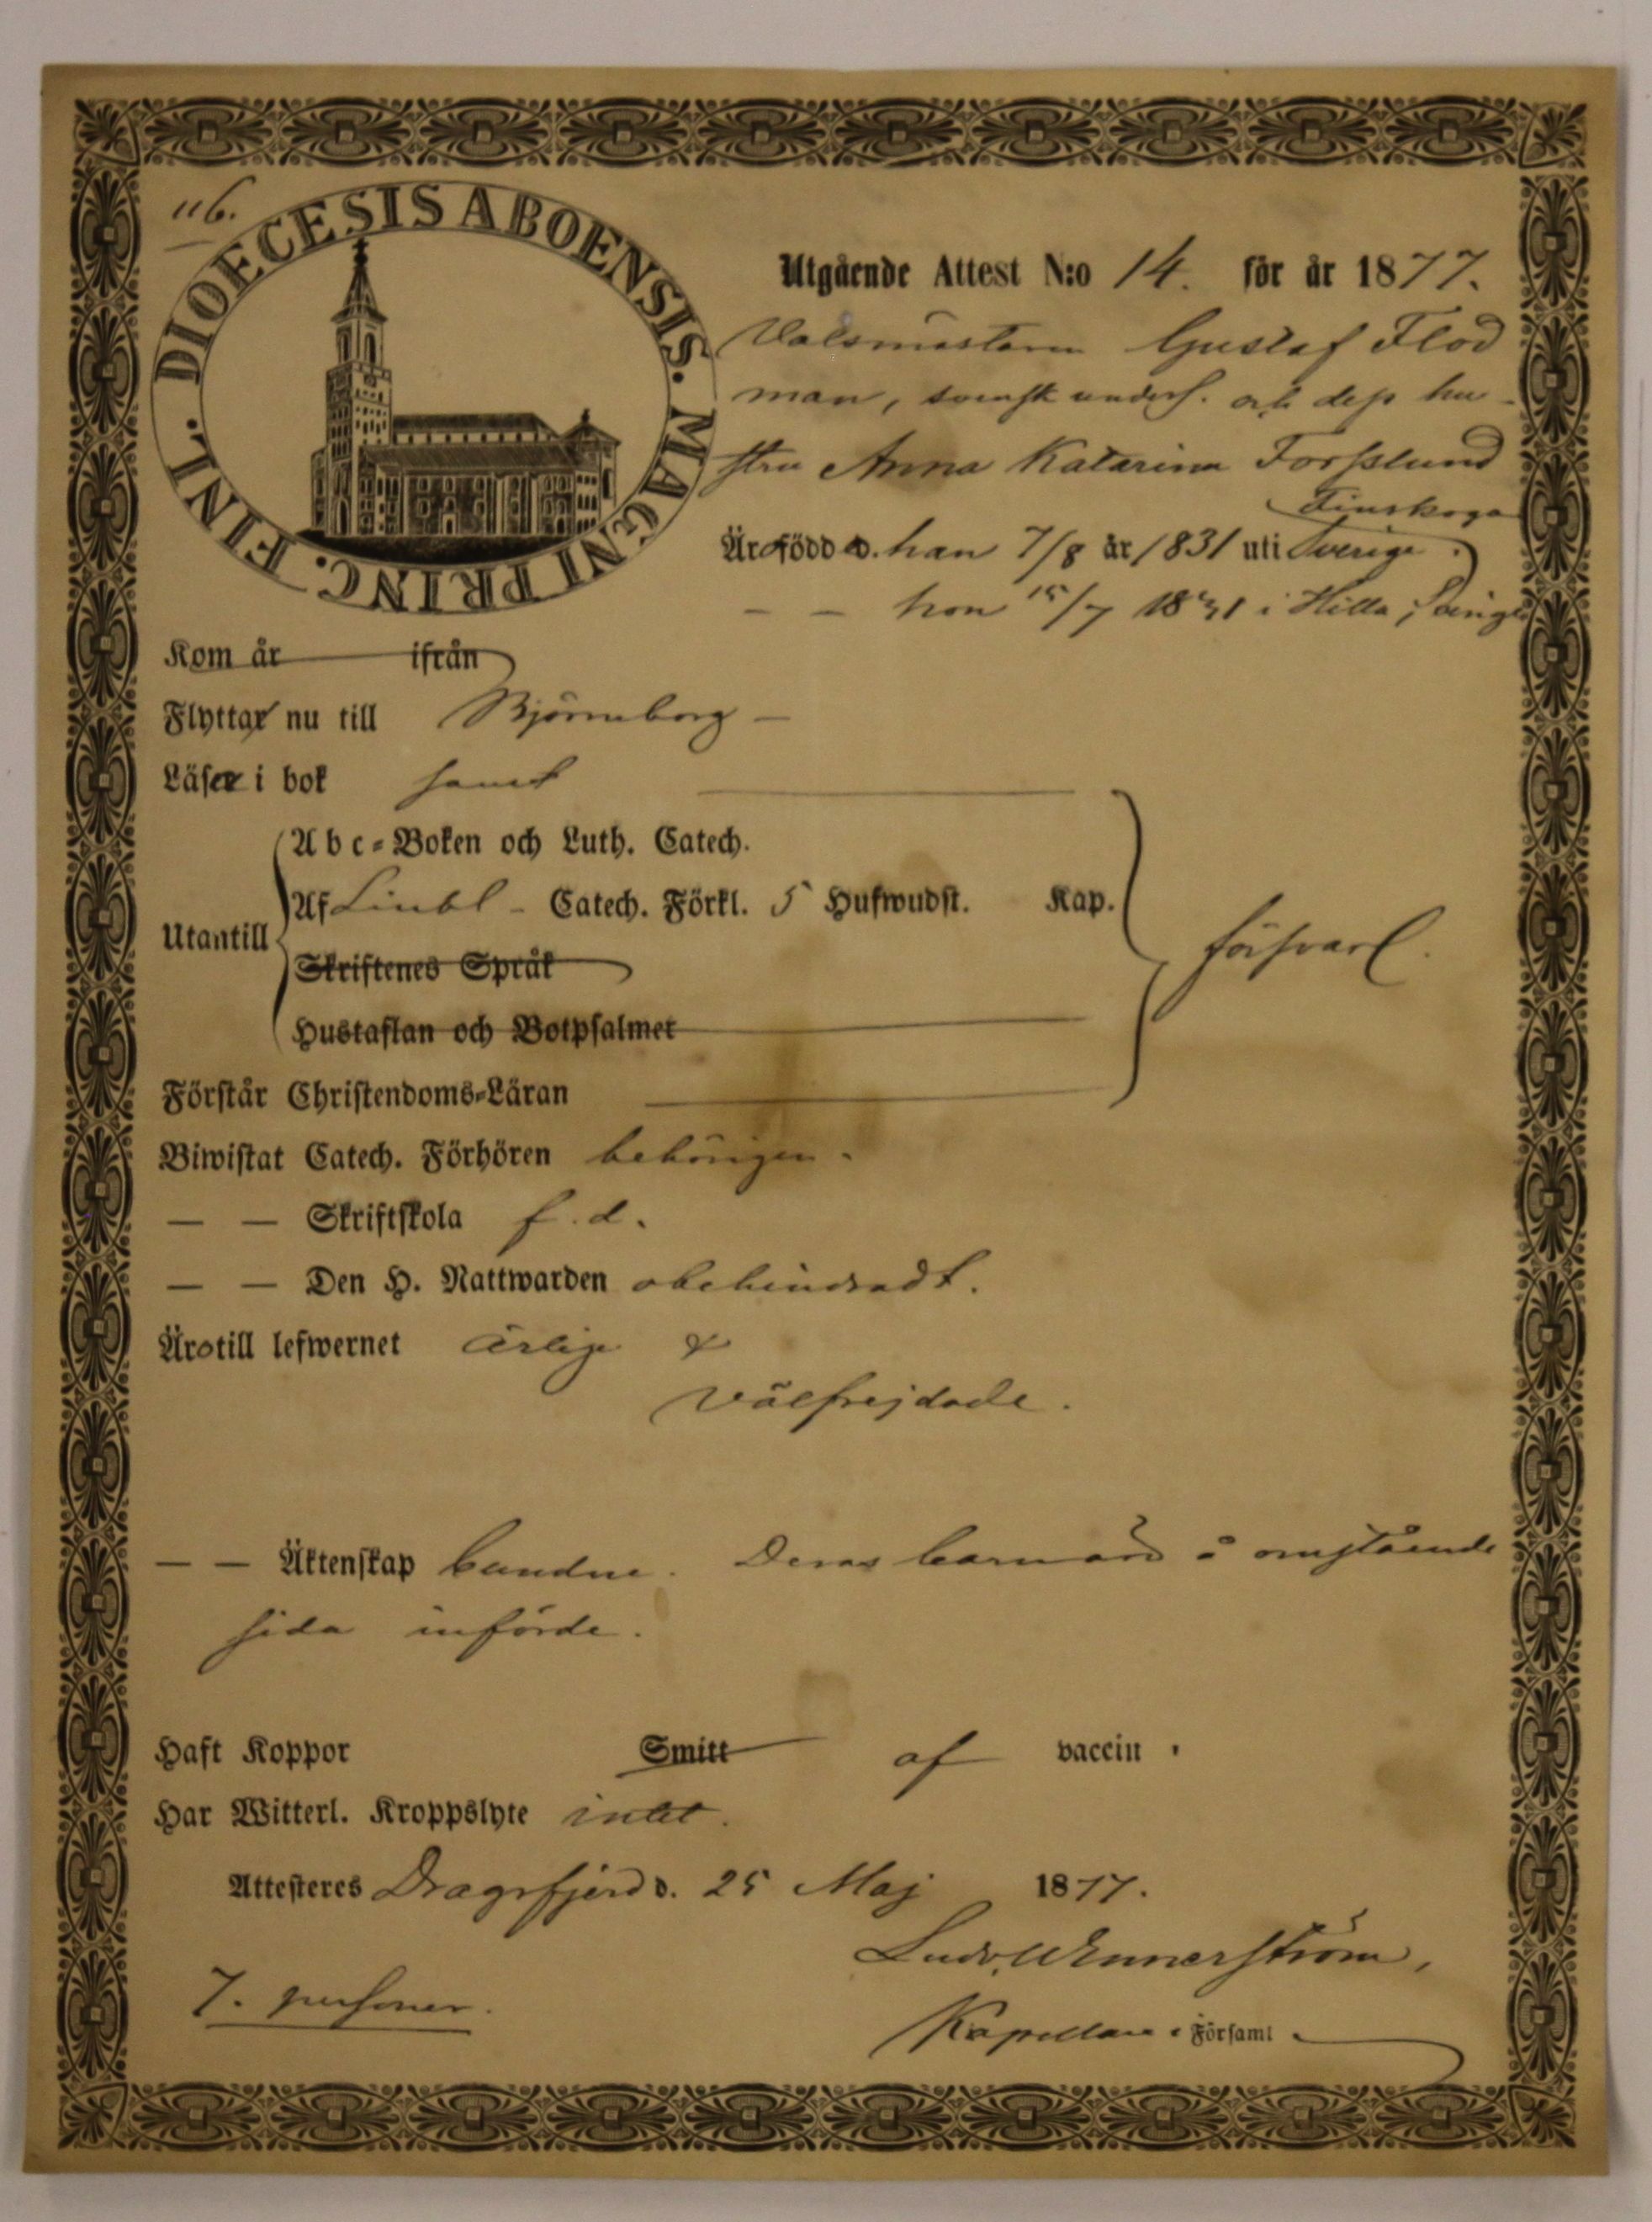 116.
DIOECESIS ABOENSIS. MAGNI PRINC. FINL.
Utgående Attest N:o 14. för år 1877.
Valsmästaren Gustaf Flod
man, svensk unders. och dess hu-
stru Anna Katarina Forsslund
Finskoga
Äro född a. han 7/8 år 1831 uti Sverige.
— — hon 15/7 18 1 i Hilla, Sverige
Kom år ifrån
Flytta nu till Björneborg —
Läsa i bok samt
Abc-Boken och Luth. Catech.
Utantill Af Linbl - Catech. Förkl. 5 Hufwudst. Kap. försvarl.
Skriftenes Språk
Hustaflan och Botpsalmer
Förstår Christendoms-Läran
Biwistat Catech. Förhören behörigen.
— — Skriftskola f. d.
— — Den H. Nattwarden obehindradt.
Äro till lefwernet ärliga &
välfrejdade.
— — Äktenskap bundne. Deras barn äro å omstående
sida införde.
Haft Koppor Smitt af vaccin.
Har Witterl. Kroppslyte intet.
Attesteres Dragsfjerd d. 25 Maj 1877.
Ludv. Wennerström,
7. personer. Kapellan i Församl.